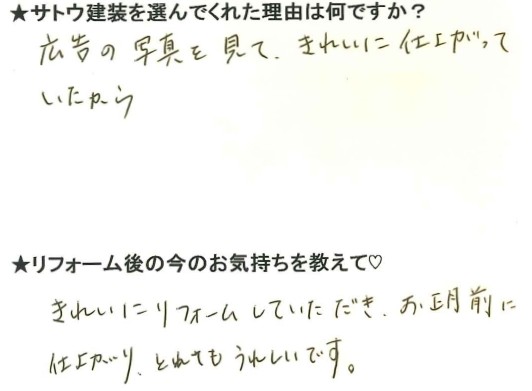 ★サトウ建装を選んでくれた理由は何ですか？
広告の写真を見て、きれいに仕上がって
いたから
★リフォーム後の今のお気持ちを教えて♡
きれいにリフォームしていただき、お正月前に
仕上がり、とってもうれしいです。